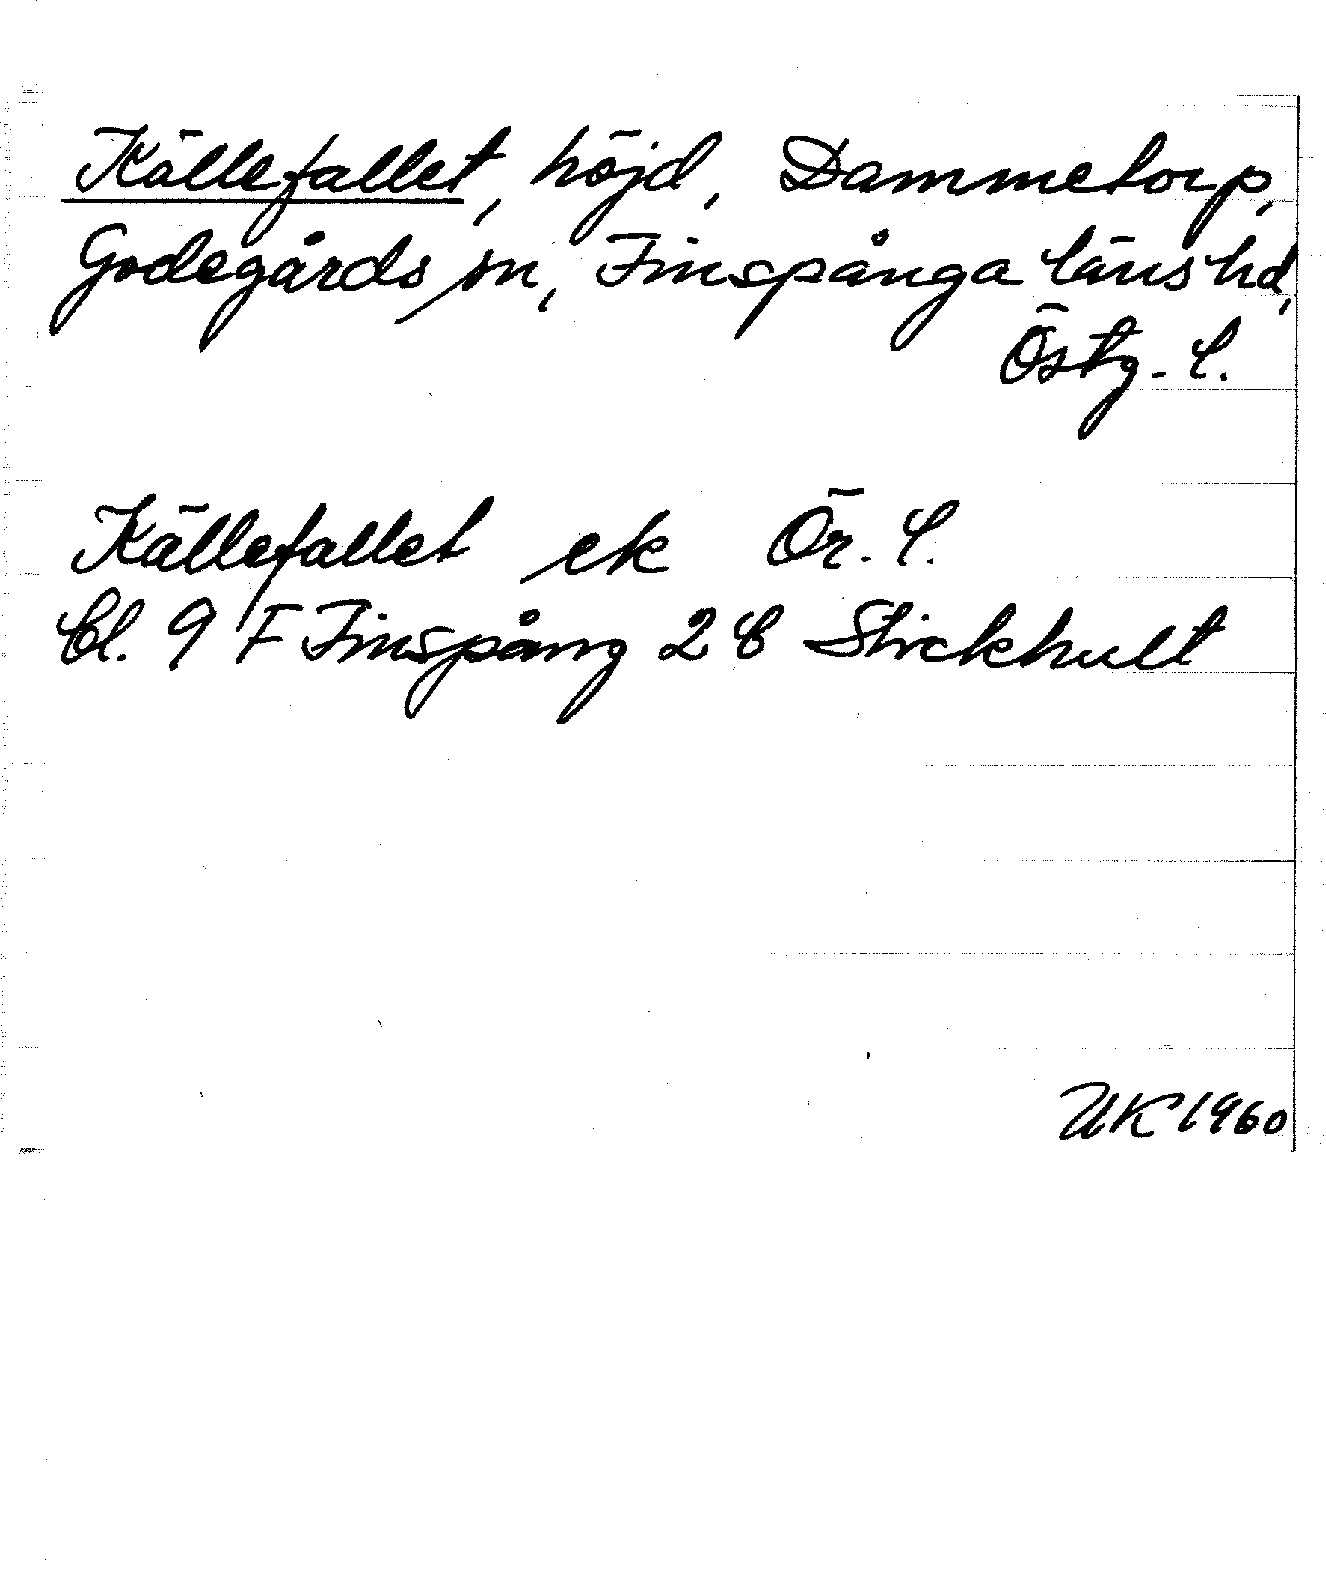 Källefallet, höjd, Dammetorp,
Godegårds sn, Finspånga läns hd,
Östg. l.
Källefallet ek Ör. l.
bl. 9 F Finspång 2 b Stickhult
UK 1960